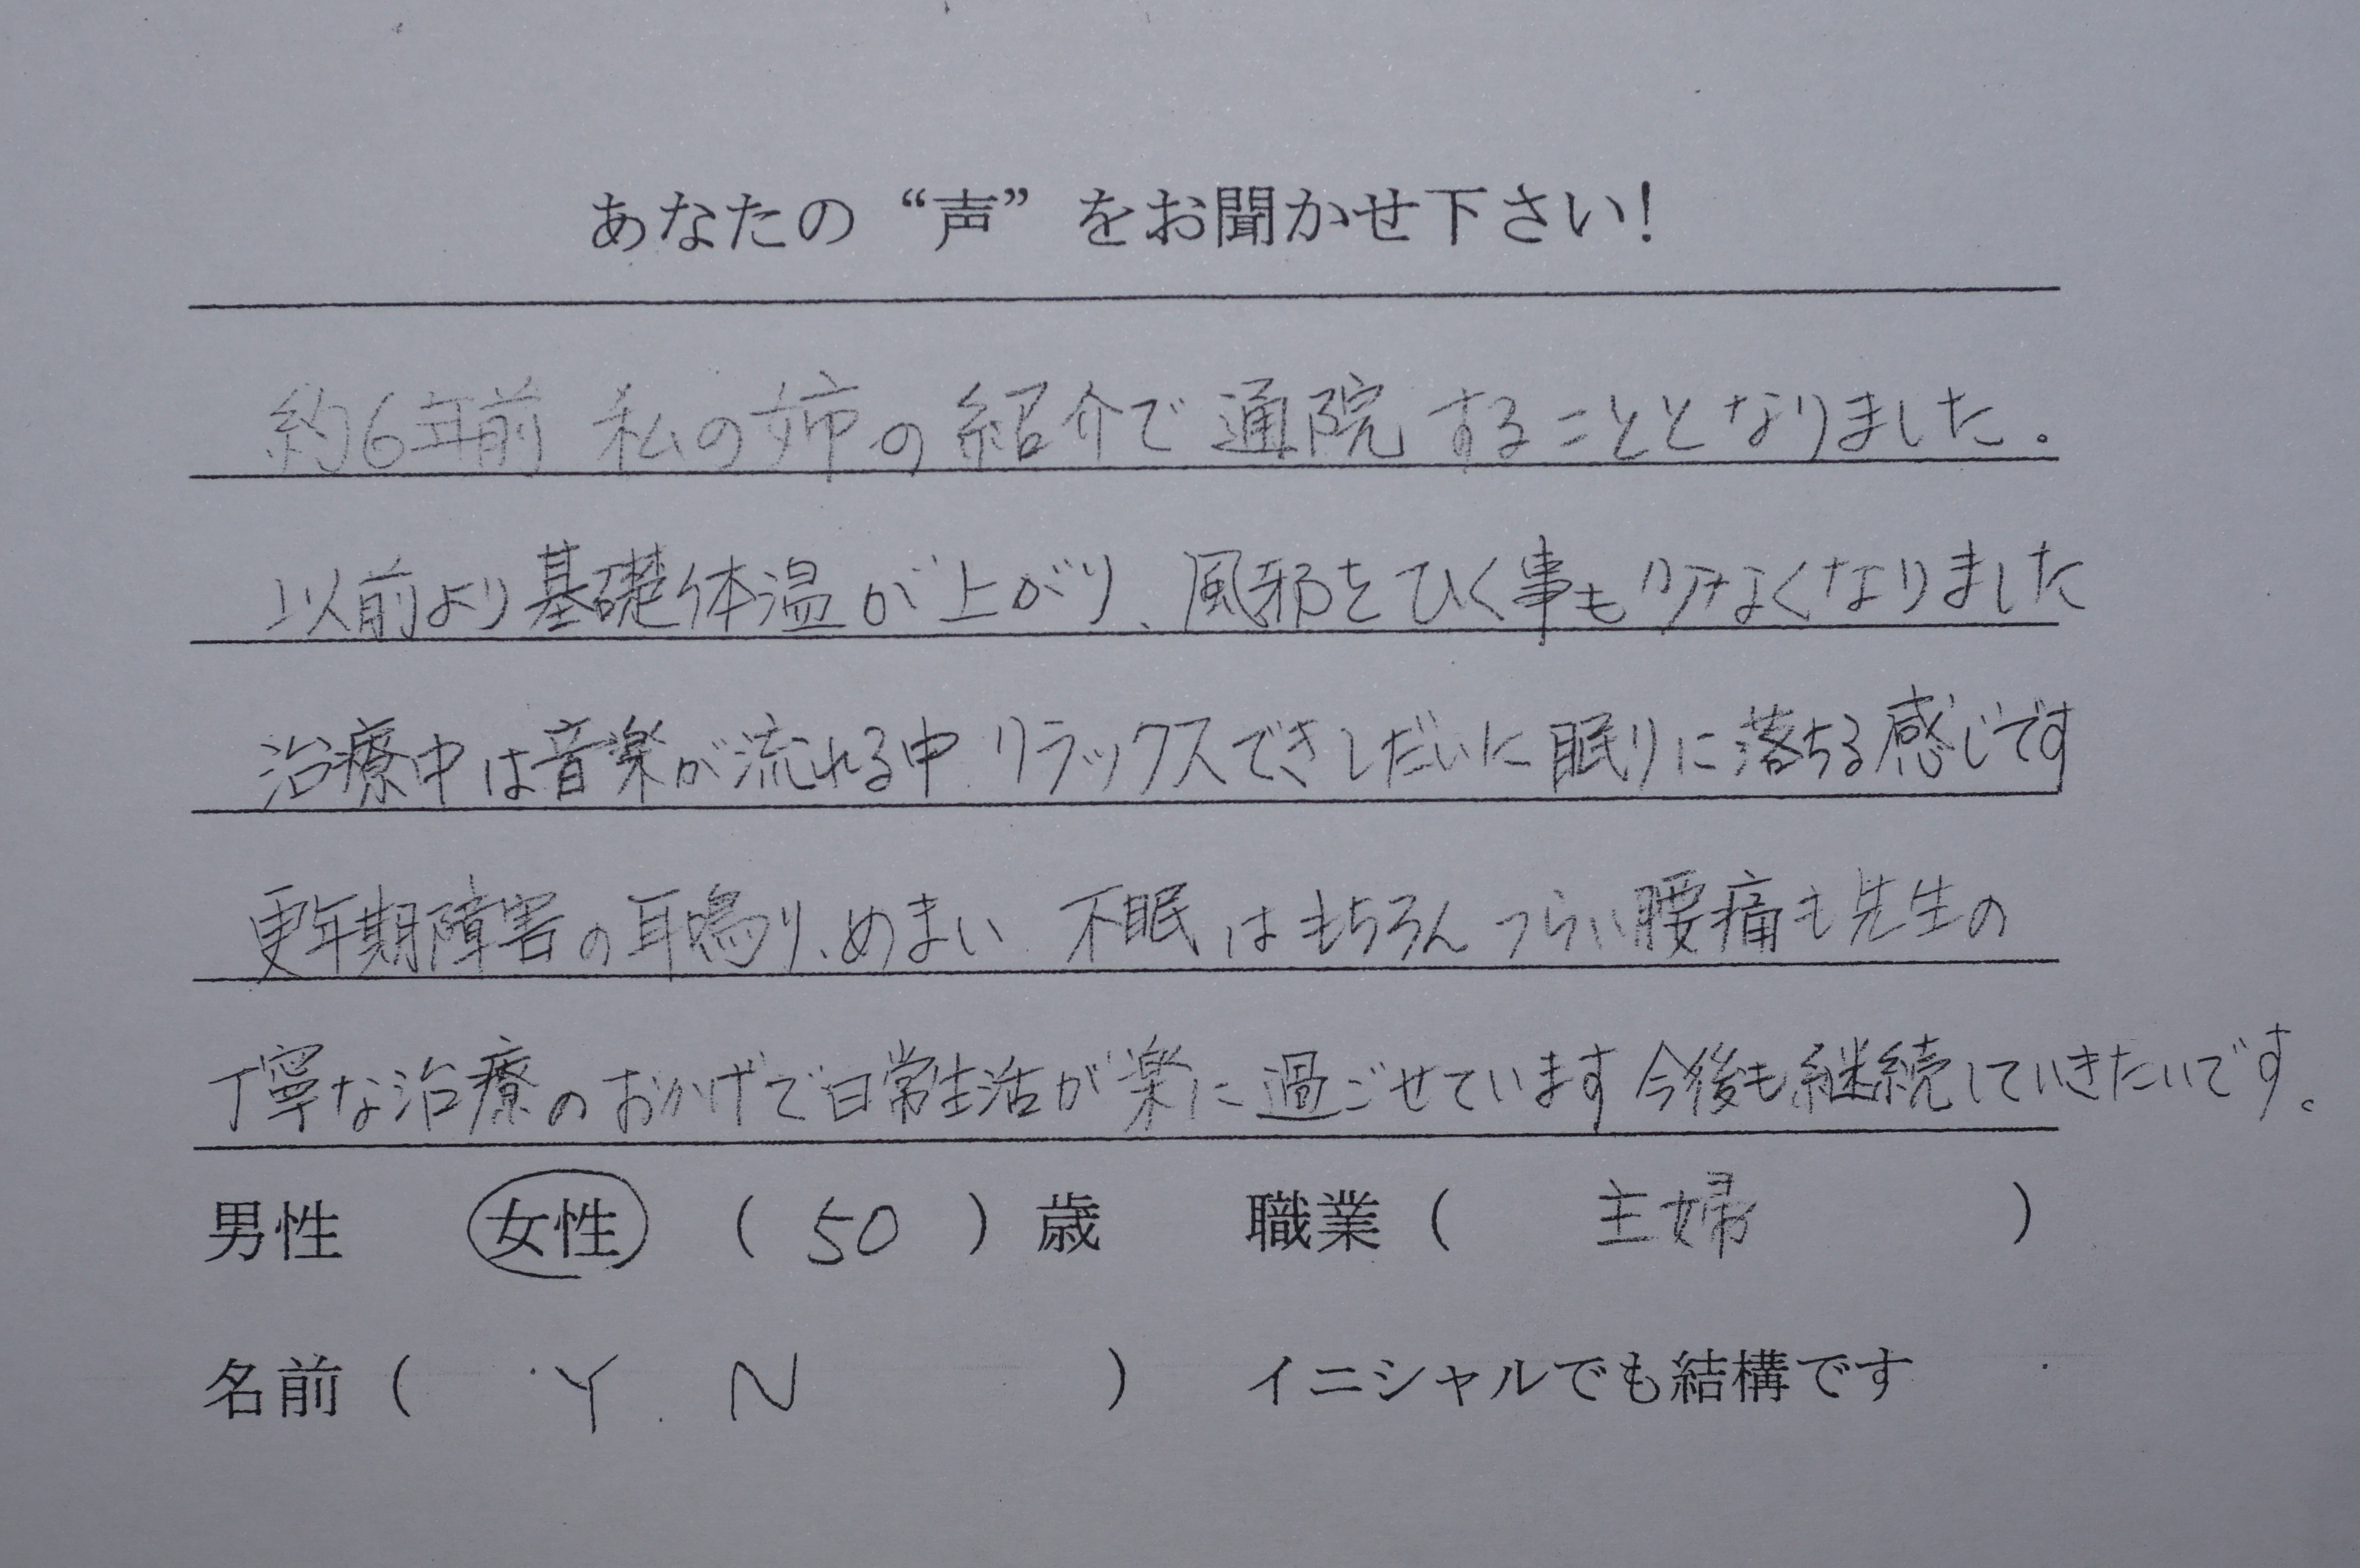 あなたの“声”をお聞かせ下さい!
約6年前 私の姉の紹介で通院することとなりました。
以前より基礎体温が上がり、風邪をひく事も少なくなりました
治療中は音楽が流れる中 リラックスできしだいに眠りに落ちる感じです
更年期障害の耳鳴り、めまい 不眠はもちろん つらい腰痛も先生の
丁寧な治療のおかげで日常生活が楽に過ごせています 今後も継続していきたいです。
男性 女性 ( 50 ) 歳 職業 ( 主婦 )
名前 ( Y.N ) イニシャルでも結構です